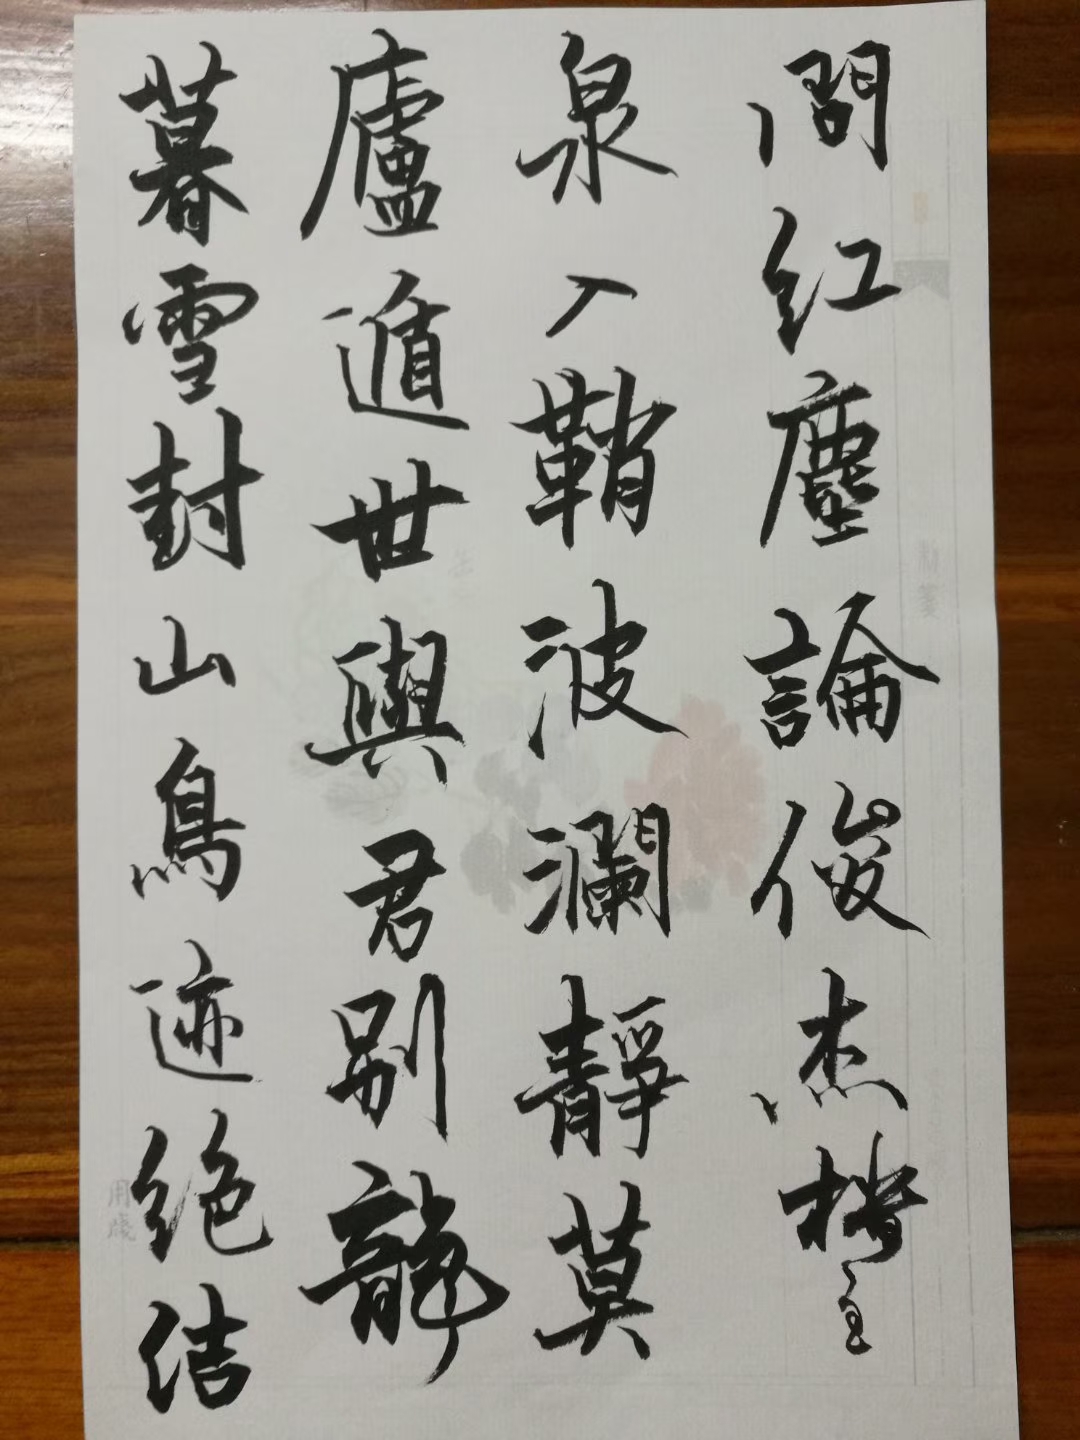 暮雪封山鳥迹绝结
廬遁世與君别龍
泉入鞘波瀾靜莫
問红塵論俊杰